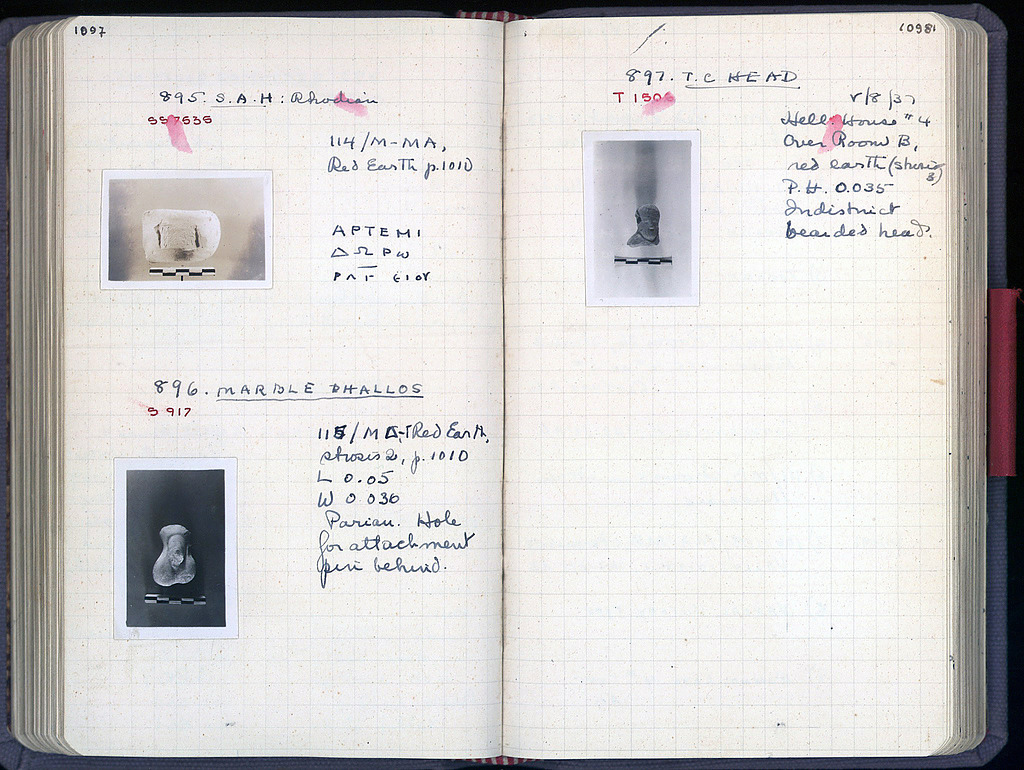 1097
895. S.A.H: Rhodian
SS 7635
114/M-MA,
Red Earth p.1010
ΑΡΤΕΜΙ
ΔΩΡω
896. MARBLE PHALLOS
S 917
Red Earth,
strosis 2, p. 1010
L 0.05
W 0.036
Parian. Hole
for attachment
pin behind.
1098
897. T.C HEAD
T 1506
V/8/37
Hell. House #4
Over Room B,
red earth (strosis
3)
P.H. 0.035
Indistinct
bearded head.